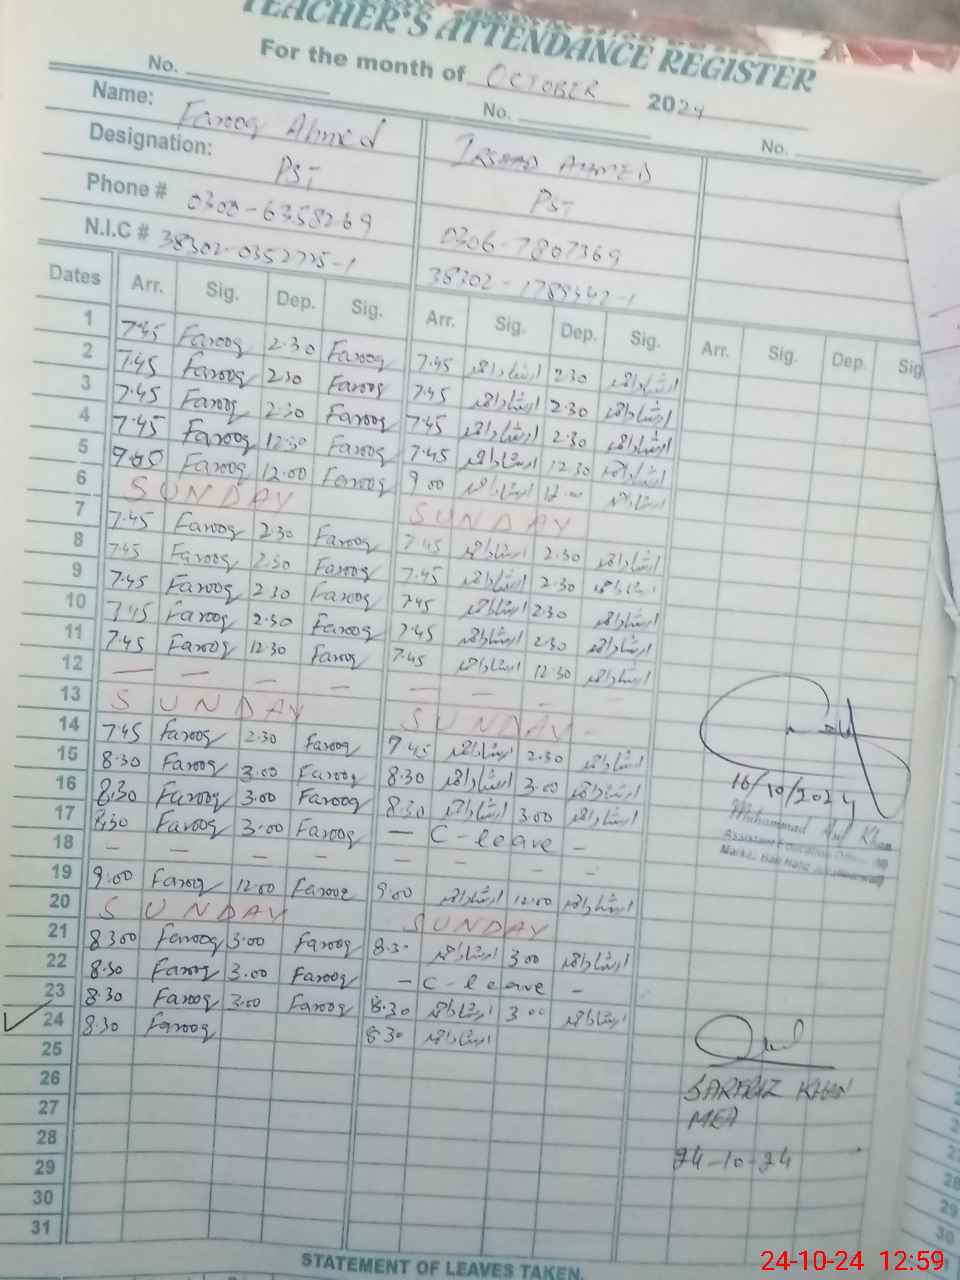 TEACHER'S ATTENDANCE REGISTER
For the month of OCTOBER 2024
No. No. No.
Name: Farooq Ahmed IRSHAD AHMED
Designation: PST PST
Phone # 0300-6358269 0306-7807369
N.I.C # 38302-0352725-1 38302-1789347-1
Dates Arr. Sig. Dep. Sig. Arr. Sig. Dep. Sig. Arr. Sig. Dep. Sig
1 7.45 Farooq 2.30 Farooq 7.45 ارشاد احمد 2.30 ارشاد احمد
2 7.45 Farooq 2.30 Farooq 7.45 ارشاد احمد 2.30 ارشاد احمد
3 7.45 Farooq 2.30 Farooq 7.45 ارشاد احمد 2.30 ارشاد احمد
4 7.45 Farooq 12.30 Farooq 7.45 ارشاد احمد 12.30 ارشاد احمد
5 9.00 Farooq 12.00 Farooq 9.00 ارشاد احمد 12.00 ارشاد احمد
6 SUNDAY SUNDAY
7 7.45 Farooq 2.30 Farooq 7.45 ارشاد احمد 2.30 ارشاد احمد
8 7.45 Farooq 2.30 Farooq 7.45 ارشاد احمد 2.30 ارشاد احمد
9 7.45 Farooq 2.30 Farooq 7.45 ارشاد احمد 2.30 ارشاد احمد
10 7.45 Farooq 2.30 Farooq 7.45 ارشاد احمد 2.30 ارشاد احمد
11 7.45 Farooq 12.30 Farooq 7.45 ارشاد احمد 12.30 ارشاد احمد
12 — — — — — — — —
13 SUNDAY SUNDAY-
14 7.45 Farooq 2.30 Farooq 7.45 ارشاد احمد 2.30 ارشاد احمد
15 8.30 Farooq 3.00 Farooq 8.30 ارشاد احمد 3.00 ارشاد احمد
16 8.30 Farooq 3.00 Farooq 8.30 ارشاد احمد 3.00 ارشاد احمد
17 8.30 Farooq 3.00 Farooq — C-leave -
18 — — — — — — — —
19 9.00 Farooq 12.00 Farooq 9.00 ارشاد احمد 12.00 ارشاد احمد
20 SUNDAY SUNDAY
21 8.300 Farooq 3.00 Farooq 8.30 ارشاد احمد 3.00 ارشاد احمد
22 8.30 Farooq 3.00 Farooq - C-leave -
23 8.30 Farooq 3.00 Farooq 8.30 ارشاد احمد 3.00 ارشاد احمد
24 8.30 Farooq 8.30 ارشاد احمد
25
26
27
28
29
30
31
16/10/2024
Muhammad Khan
Assistant Education
SARFRAZ KHAN
MEA
24-10-24
STATEMENT OF LEAVES TAKEN.
24-10-24 12:59